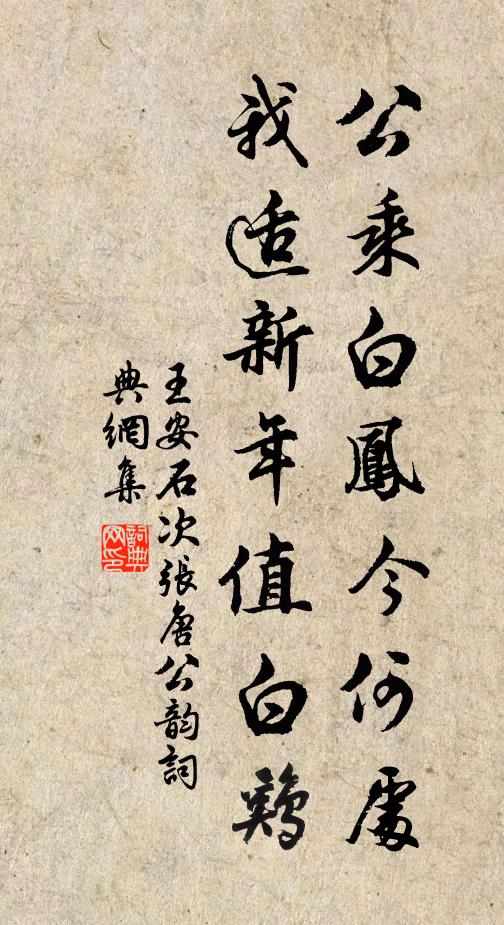 公乘白鳳今何處
我适新年值白鷄
王安石次張唐公韵詞
典網集
詞典
网印